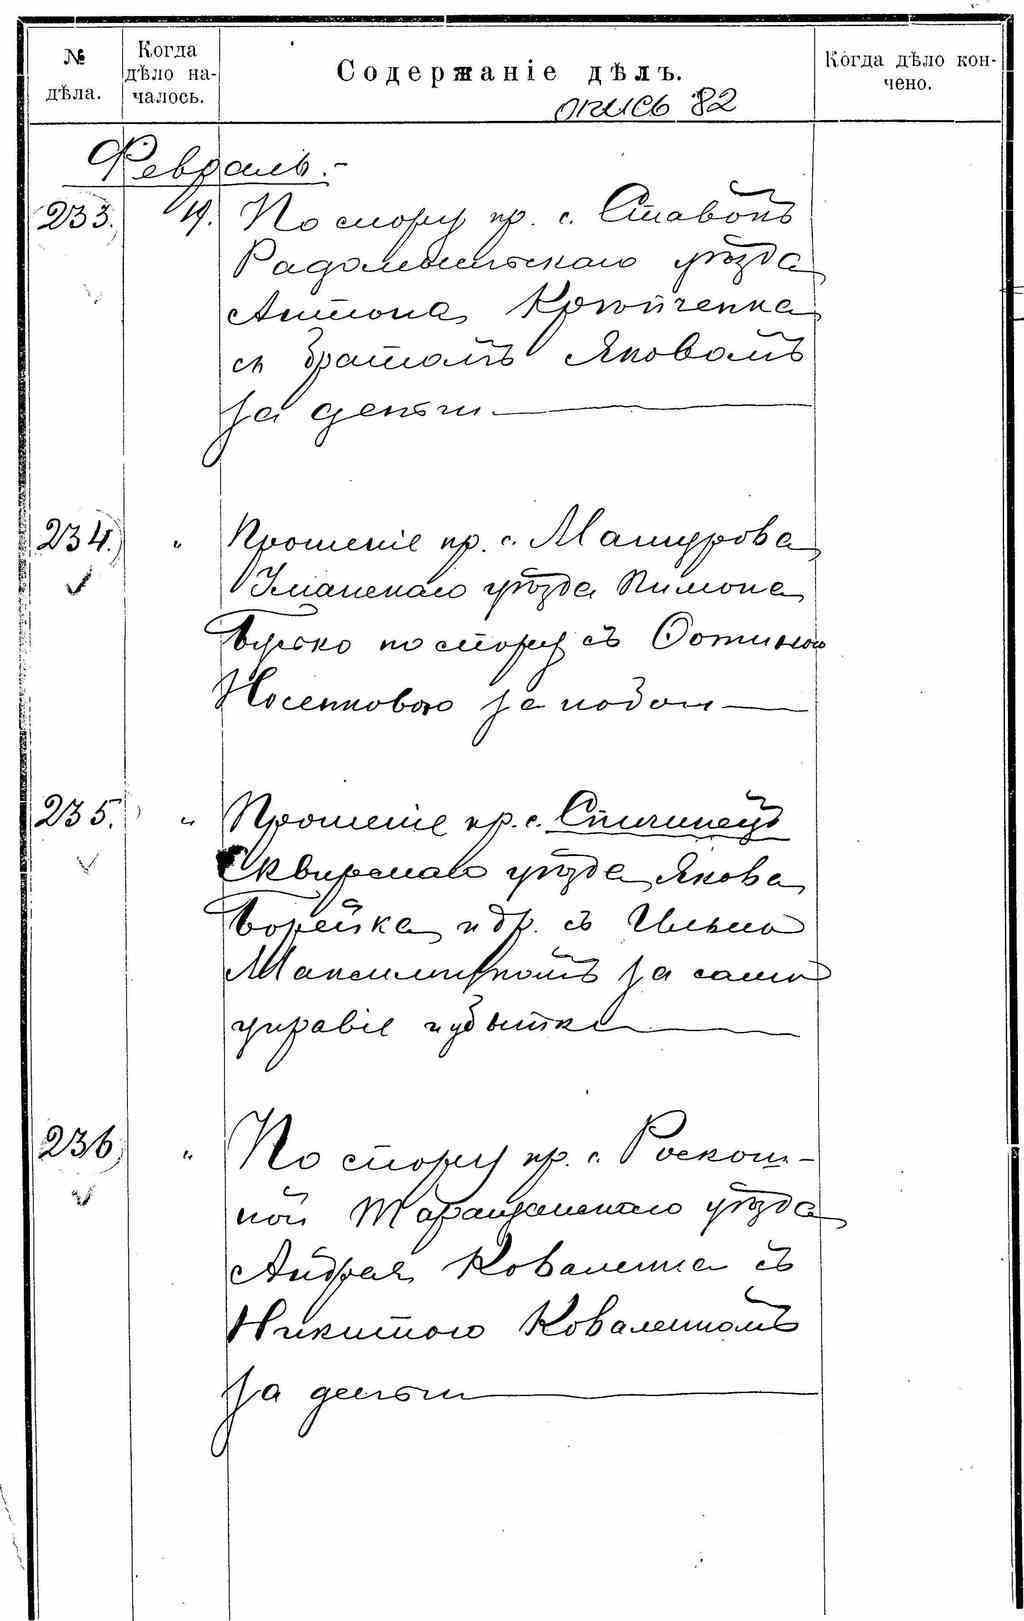 № дѣла.
Когда дѣло на-
чалось.
Содержаніе дѣлъ.
Когда дѣло кон-
чено.
опись 82
Февраль.-
233. 19. По спору кр. с. Ставокъ
Радомысльскаго уѣзда
Антона Крюпченка
съ братомъ Яковомъ
за деньги
234. „ Прошеніе кр. с. Машурова
Уманскаго уѣзда Пимона
Бутко по спору съ
Носенковою за
235. „ Прошеніе кр. с. Спичинецъ
Сквирскаго уѣзда Якова
Борейка и др. съ Ильею
Максимчукомъ за само
управіе и убытки
236 „ По спору кр. с. Роскош-
ной Таращанскаго уѣзда
Андрея Коваленка съ
Никитою Коваленкомъ
за деньги